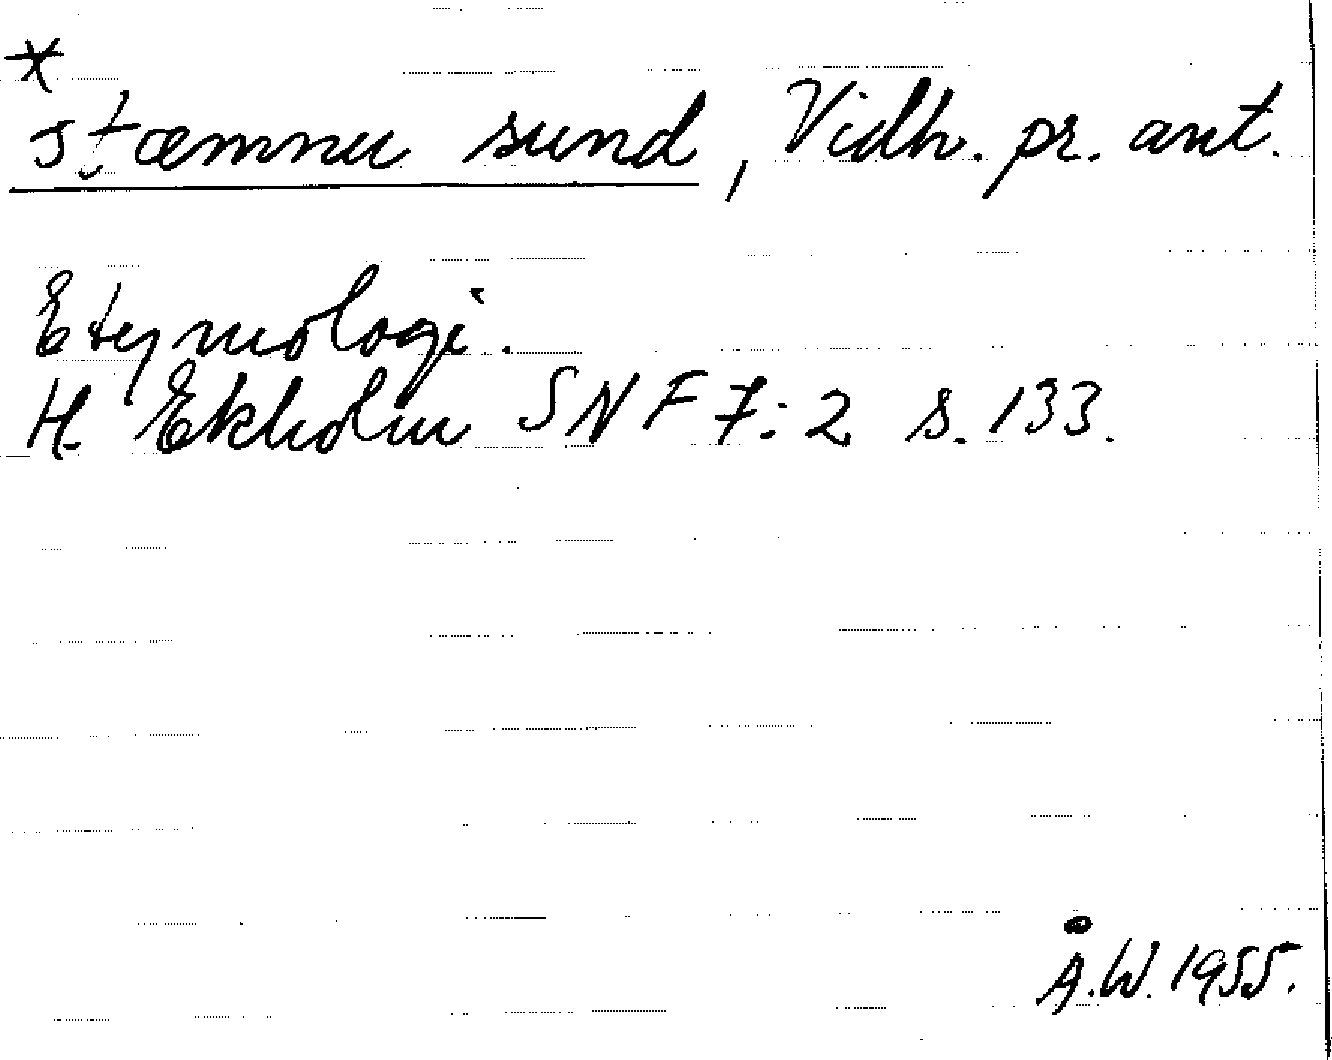 *
stæmnu sund, Vidh. pr. ant.
Etymologi.
H. Ekholm SNF 7:2 s. 133.
Å.W. 1955.